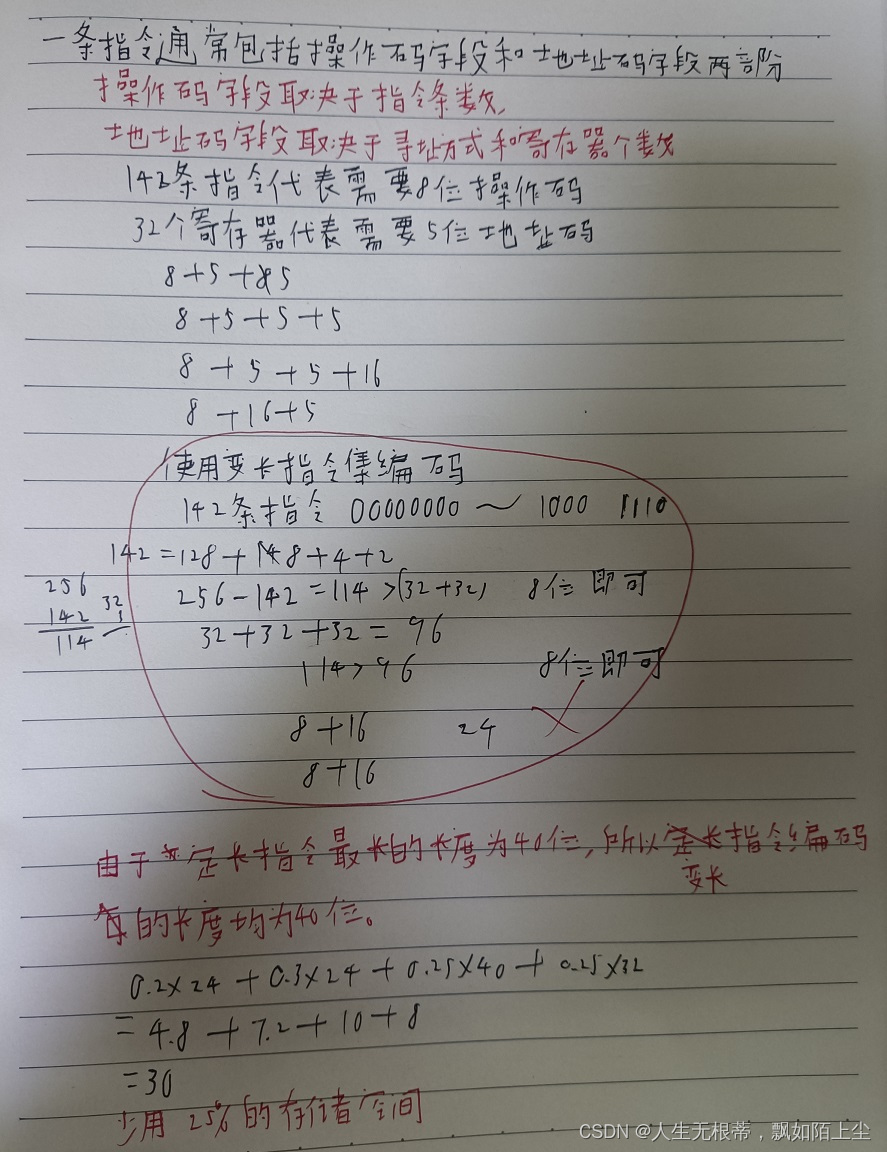 一条指令通常包括操作码字段和地址码字段两部分
操作码字段取决于指令条数,
地址码字段取决于寻址方式和寄存器个数
142条指令代表需要8位操作码
32个寄存器代表需要5位地址码
8+5+5
8+5+5+5
8+5+5+16
8+16+5
使用变长指令集编码
142条指令 00000000 ~ 1000 1110
142=128+8+4+2
256-142=114>(32+32) 8位即可
256
142
114
32
3
32+32+32=96
114>96 8位即可
8+16 24
8+16
由于定长指令最长的长度为40位,所以定长指令编码
变长
每的长度均为40位。
0.2×24+0.3×24+0.25×40+0.25×32
=4.8+7.2+10+8
=30
少用25%的存储空间
CSDN @人生无根蒂，飘如陌上尘